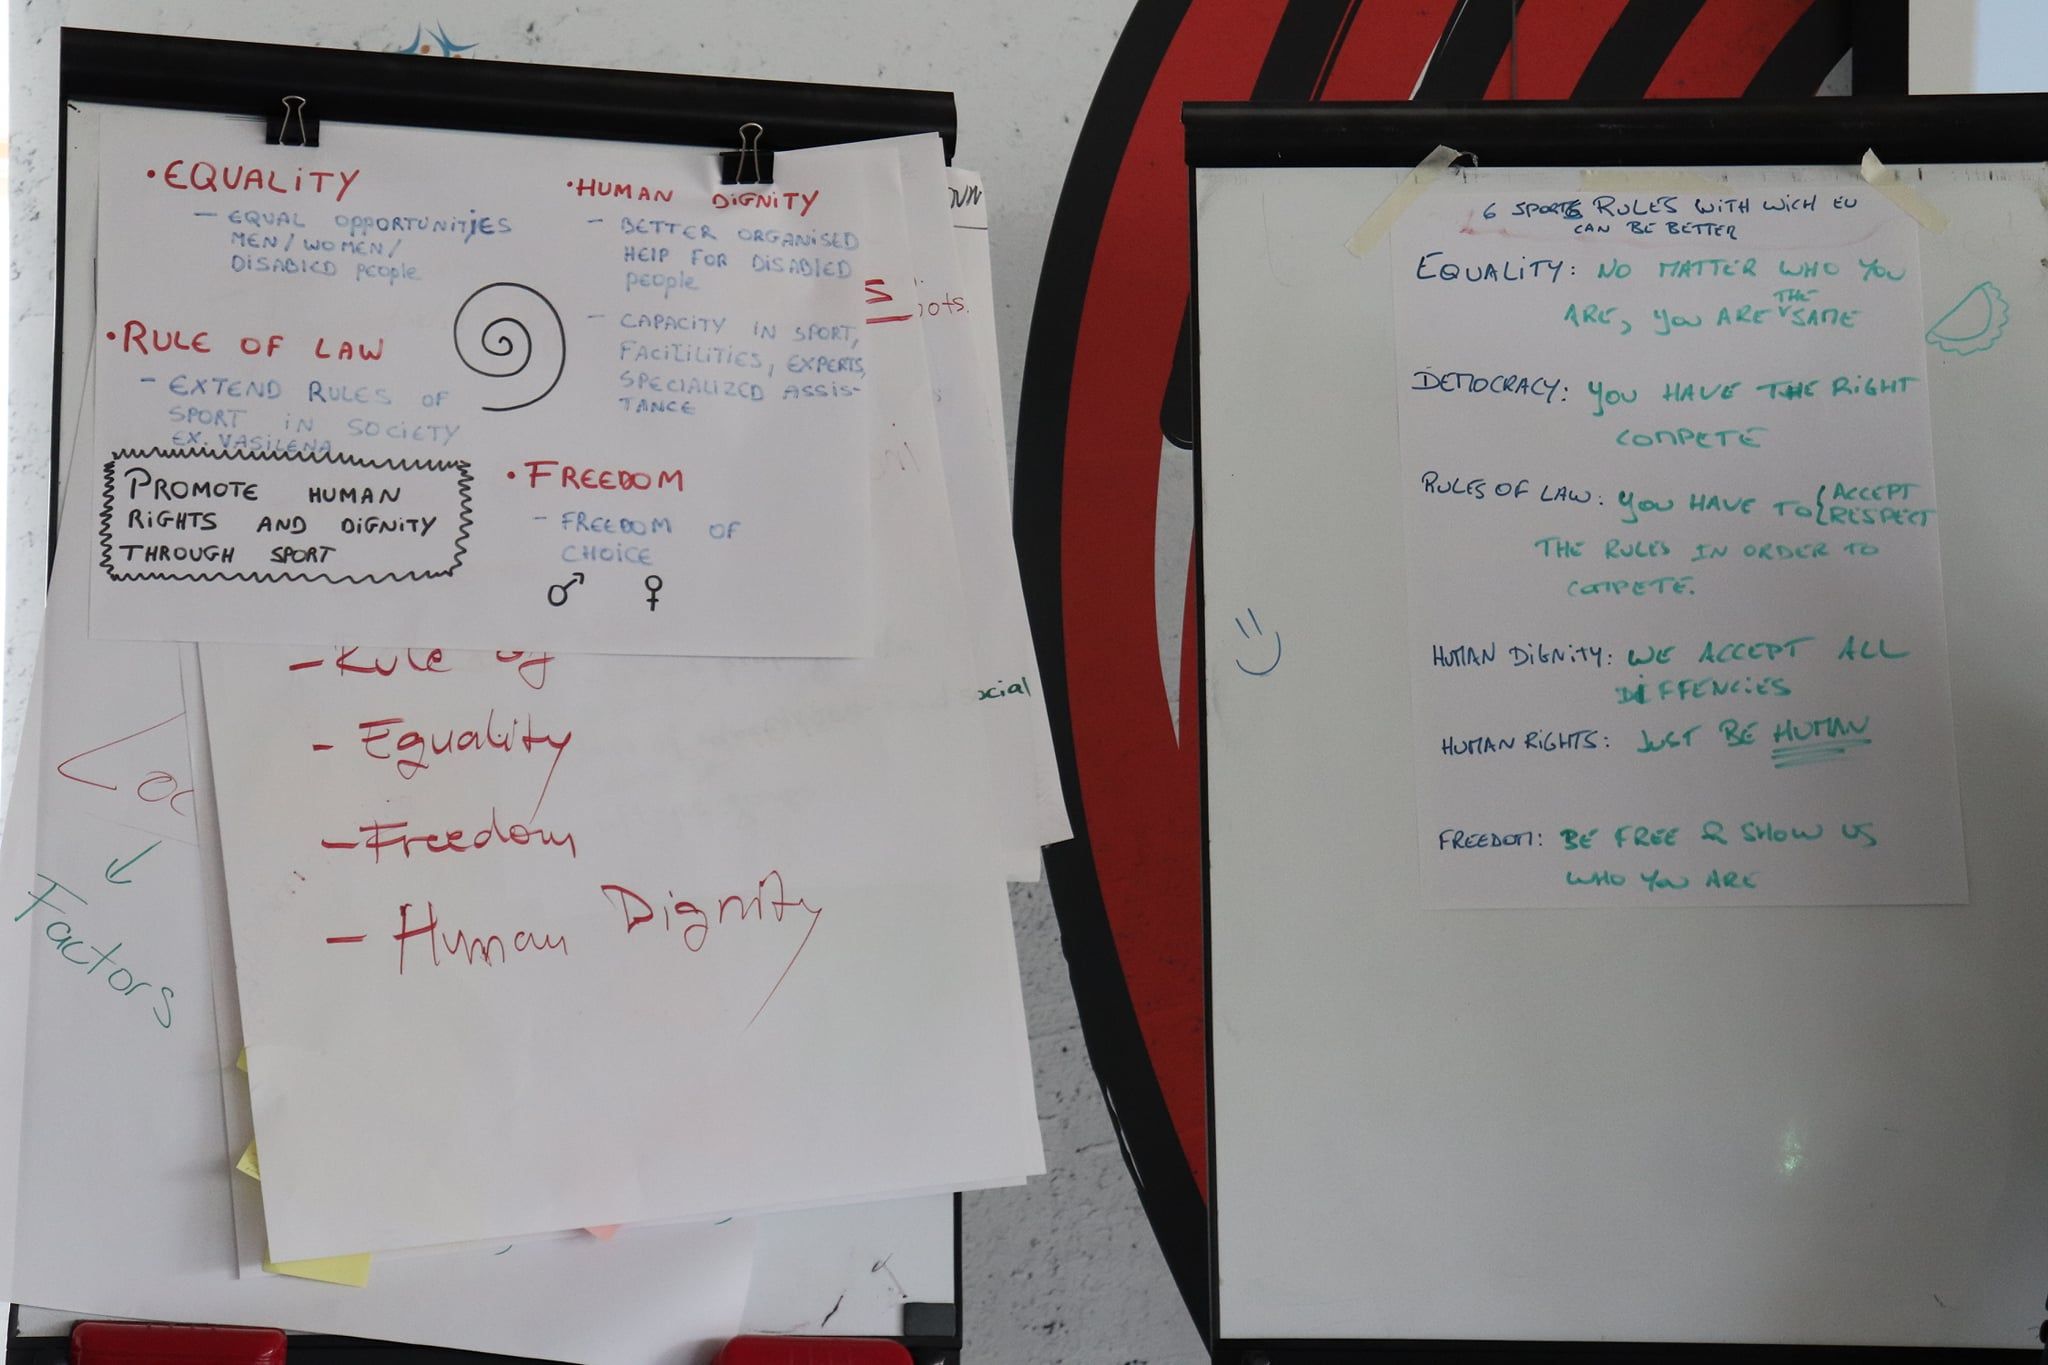 • EQUALITY
– EQUAL OPPORTUNITIES
MEN/WOMEN/
DISABLED people
• RULE OF LAW
– EXTEND RULES OF
SPORT IN SOCIETY
EX. VASILENA
PROMOTE HUMAN
RIGHTS AND DIGNITY
THROUGH SPORT
• HUMAN DIGNITY
– BETTER ORGANISED
HELP FOR DISABLED
people
– CAPACITY IN SPORT,
FACILILITIES, EXPERTS,
SPECIALIZED ASSIS-
TANCE
• FREEDOM
– FREEDOM OF
CHOICE
♂ ♀
– Rule of
– Equality
– Freedom
– Human Dignity
Factors
ots.
ocial
6 SPORTS RULES WITH WICH EU
CAN BE BETTER
EQUALITY: NO MATTER WHO YOU
ARE, YOU ARE THE SAME
DEMOCRACY: YOU HAVE THE RIGHT
COMPETE
RULES OF LAW: YOU HAVE TO { ACCEPT
RESPECT
THE RULES IN ORDER TO
COMPETE.
HUMAN DIGNITY: WE ACCEPT ALL
DIFFENCIES
HUMAN RIGHTS: JUST BE HUMAN
FREEDOM: BE FREE & SHOW US
WHO YOU ARE